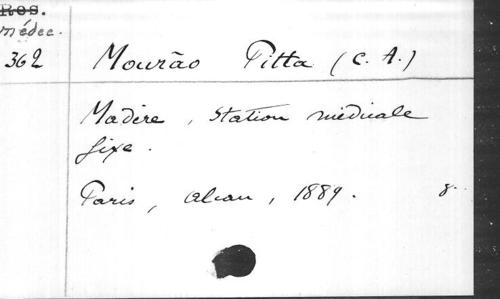 Res.
médec.
362 Mourão Pitta (C. A.)
Madère, Station médicale
fixe.
Paris, Alcan, 1889. 8.